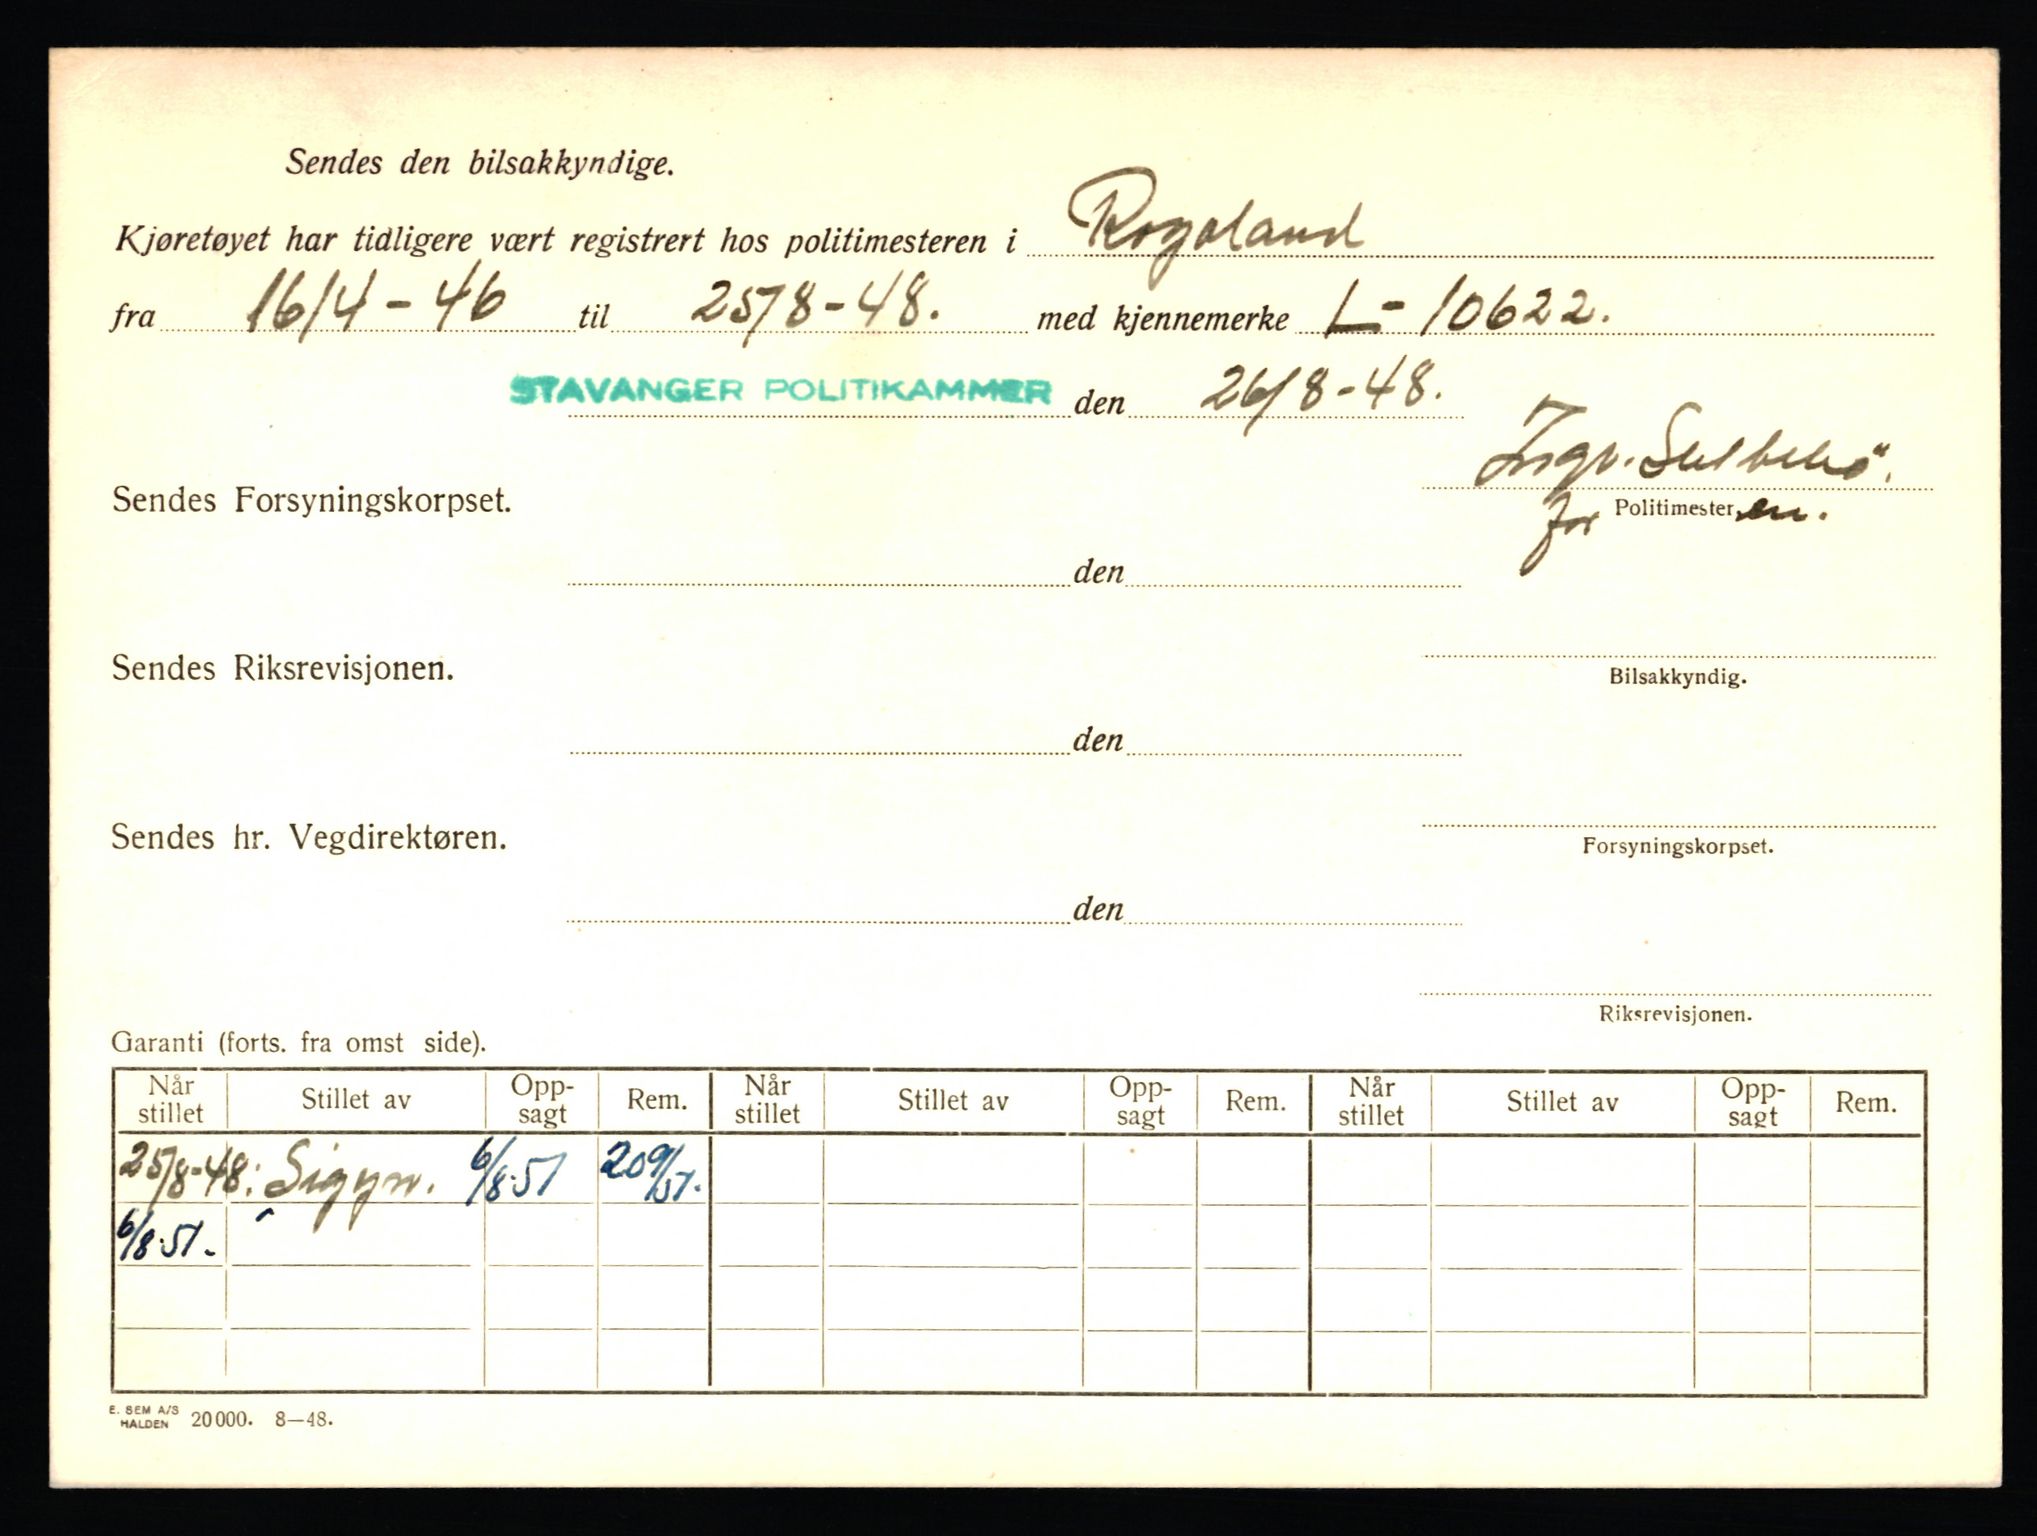 Sendes den bilsakkyndige.
Kjøretøyet har tidligere vært registrert hos politimesteren i Rogaland
fra 16/4-46 til 25/8-48. med kjennemerke L-10622.
STAVANGER POLITIKAMMER den 26/8-48.
Ingv.
Sendes Forsyningskorpset.
for Politimesteren.
den
Sendes Riksrevisjonen.
Bilsakkyndig.
den
Sendes hr. Vegdirektøren.
Forsyningskorpset.
den
Riksrevisjonen.
Garanti (forts. fra omst side).
Når stillet Stillet av Opp-sagt Rem. Når stillet Stillet av Opp-sagt Rem. Når stillet Stillet av Opp-sagt Rem.
25/8-48: Sigyn. 6/8.51 209/51.
6/8.51. "
E. SEM A/S HALDEN 20000. 8—48.